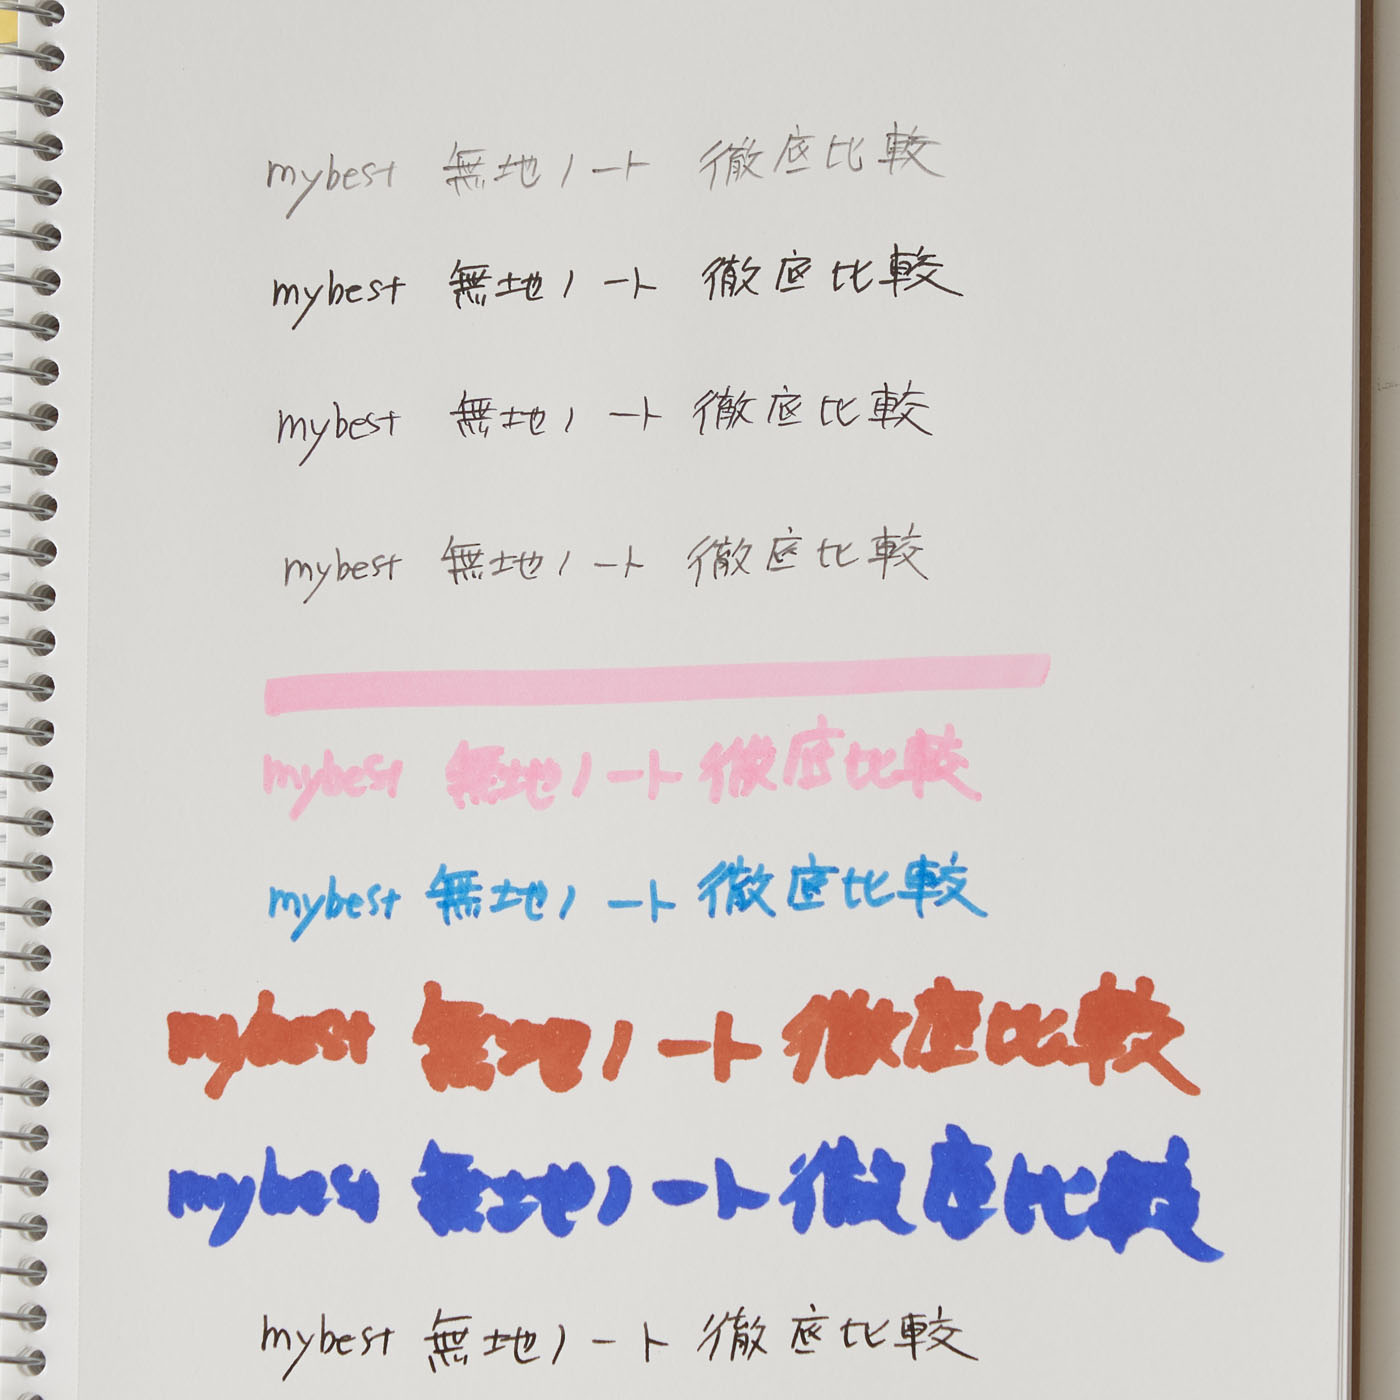 mybest 無地ノート 徹底比較
mybest 無地ノート 徹底比較
mybest 無地ノート 徹底比較
mybest 無地ノート 徹底比較
mybest 無地ノート 徹底比較
mybest 無地ノート 徹底比較
mybest 無地ノート 徹底比較
mybest 無地ノート 徹底比較
mybest 無地ノート 徹底比較